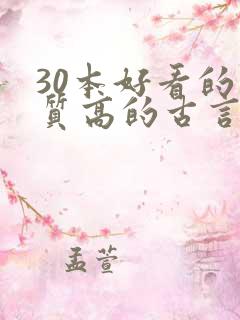 30本好看的
质高的古言
孟萱